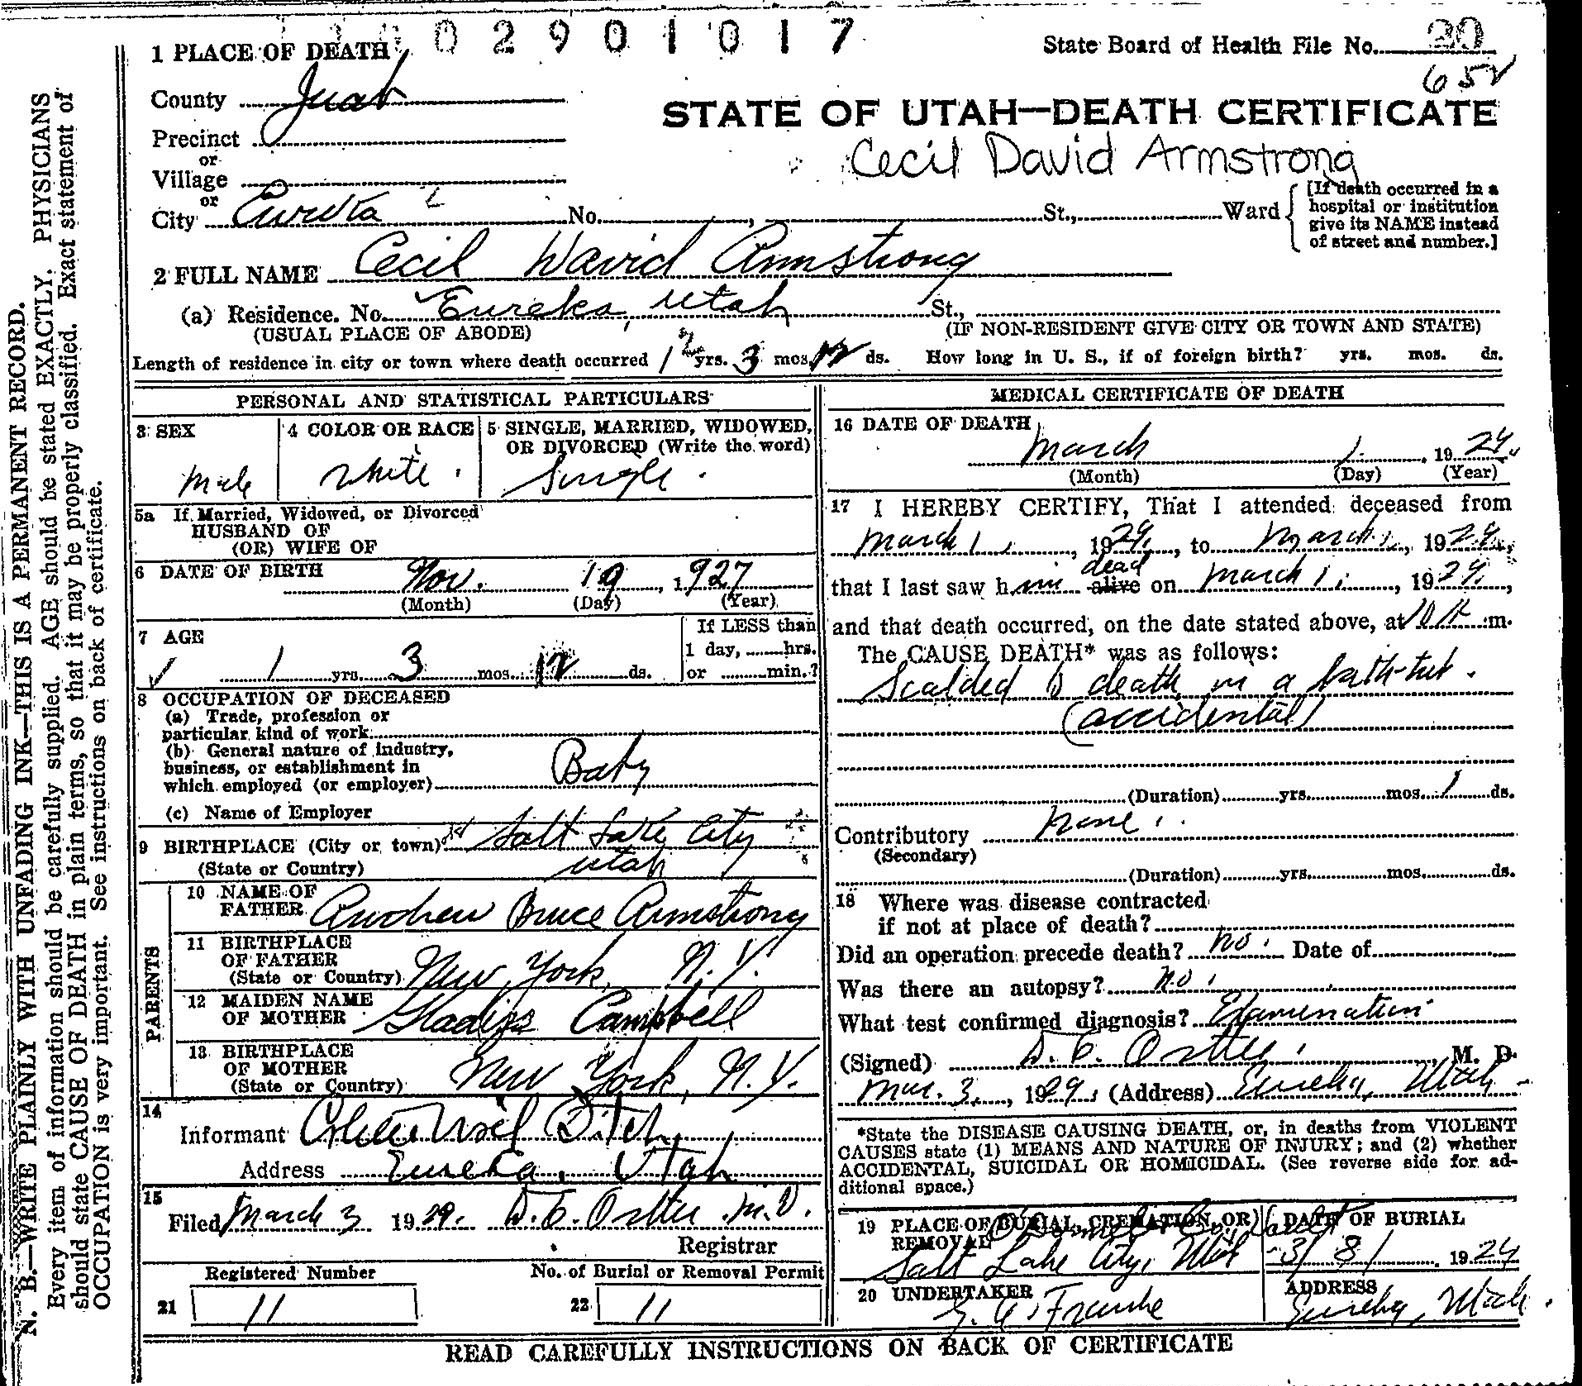 1002901017
State Board of Health File No. 20
652
1 PLACE OF DEATH
County Juab
STATE OF UTAH—DEATH CERTIFICATE
Precinct
or
Village
Cecil David Armstrong
or
City Eureka No. , St., Ward
[If death occurred in a
hospital or institution
give its NAME instead
of street and number.]
2 FULL NAME Cecil David Armstrong
(a) Residence. No. Eureka, Utah St.,
(USUAL PLACE OF ABODE) (IF NON-RESIDENT GIVE CITY OR TOWN AND STATE)
Length of residence in city or town where death occurred 1 yrs. 3 mos. 12 ds. How long in U. S., if of foreign birth? yrs. mos. ds.
PERSONAL AND STATISTICAL PARTICULARS
3 SEX 4 COLOR OR RACE 5 SINGLE, MARRIED, WIDOWED,
OR DIVORCED (Write the word)
Male White. Single.
5a If Married, Widowed, or Divorced
HUSBAND OF
(OR) WIFE OF
6 DATE OF BIRTH Nov. 19 1927
(Month) (Day) (Year)
7 AGE 1 yrs. 3 mos. 12 ds.
If LESS than
1 day, hrs.
or min.?
8 OCCUPATION OF DECEASED
(a) Trade, profession or
particular kind of work
(b) General nature of industry,
business, or establishment in
which employed (or employer) Baby
(c) Name of Employer
9 BIRTHPLACE (City or town) Salt Lake City
(State or Country) Utah
PARENTS
10 NAME OF
FATHER Andrew Bruce Armstrong
11 BIRTHPLACE
OF FATHER
(State or Country) New York, N.Y.
12 MAIDEN NAME
OF MOTHER Gladys Campbell
13 BIRTHPLACE
OF MOTHER
(State or Country) New York, N.Y.
14
Informant Bitch
Address Eureka, Utah
15
Filed March 3 1929. D.C. M.D.
Registrar
Registered Number No. of Burial or Removal Permit
21 11 22 11
MEDICAL CERTIFICATE OF DEATH
16 DATE OF DEATH
March 1. , 1929.
(Month) (Day) (Year)
17 I HEREBY CERTIFY, That I attended deceased from
March 1, , 1929, to March 1, , 1929,
that I last saw him dead alive on March 1. , 1929,
and that death occurred, on the date stated above, at 10 m.
The CAUSE DEATH* was as follows:
Scalded to death in a bath-tub.
(accidental)
(Duration) yrs. mos. 1 ds.
Contributory None.
(Secondary)
(Duration) yrs. mos. ds.
18 Where was disease contracted
if not at place of death?
Did an operation precede death? No. Date of
Was there an autopsy? No.
What test confirmed diagnosis? Examination
(Signed) D.C. , M. D.
Mar. 3, , 1929. (Address) Eureka, Utah
*State the DISEASE CAUSING DEATH, or, in deaths from VIOLENT
CAUSES state (1) MEANS AND NATURE OF INJURY; and (2) whether
ACCIDENTAL, SUICIDAL OR HOMICIDAL. (See reverse side for ad-
ditional space.)
19 PLACE OF BURIAL, CREMATION, OR DATE OF BURIAL
REMOVAL
Salt Lake City, Utah 3/8/ 1929
20 UNDERTAKER ADDRESS
Eureka, Utah.
READ CAREFULLY INSTRUCTIONS ON BACK OF CERTIFICATE
N. B.—WRITE PLAINLY WITH UNFADING INK—THIS IS A PERMANENT RECORD.
Every item of information should be carefully supplied. AGE should be stated EXACTLY. PHYSICIANS
should state CAUSE OF DEATH in plain terms, so that it may be properly classified. Exact statement of
OCCUPATION is very important. See instructions on back of certificate.